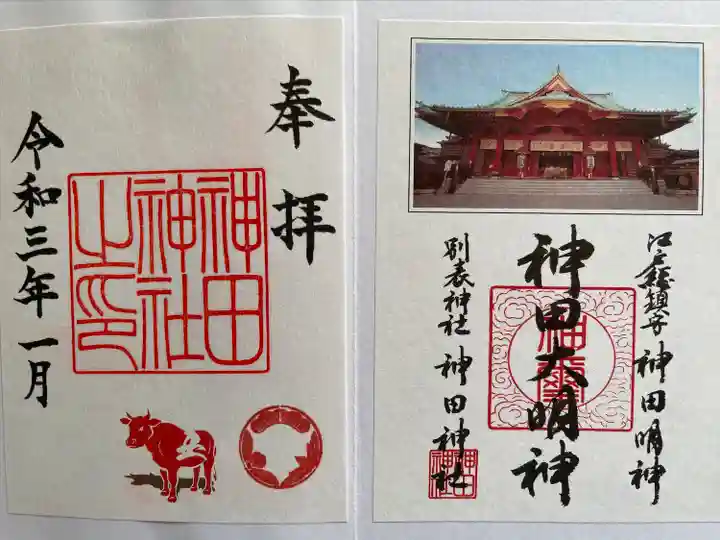 奉拝
神田
神社
之印
令和三年一月
江戸総鎮守 神田明神
神田大明神
別表神社 神田神社
神田
神社